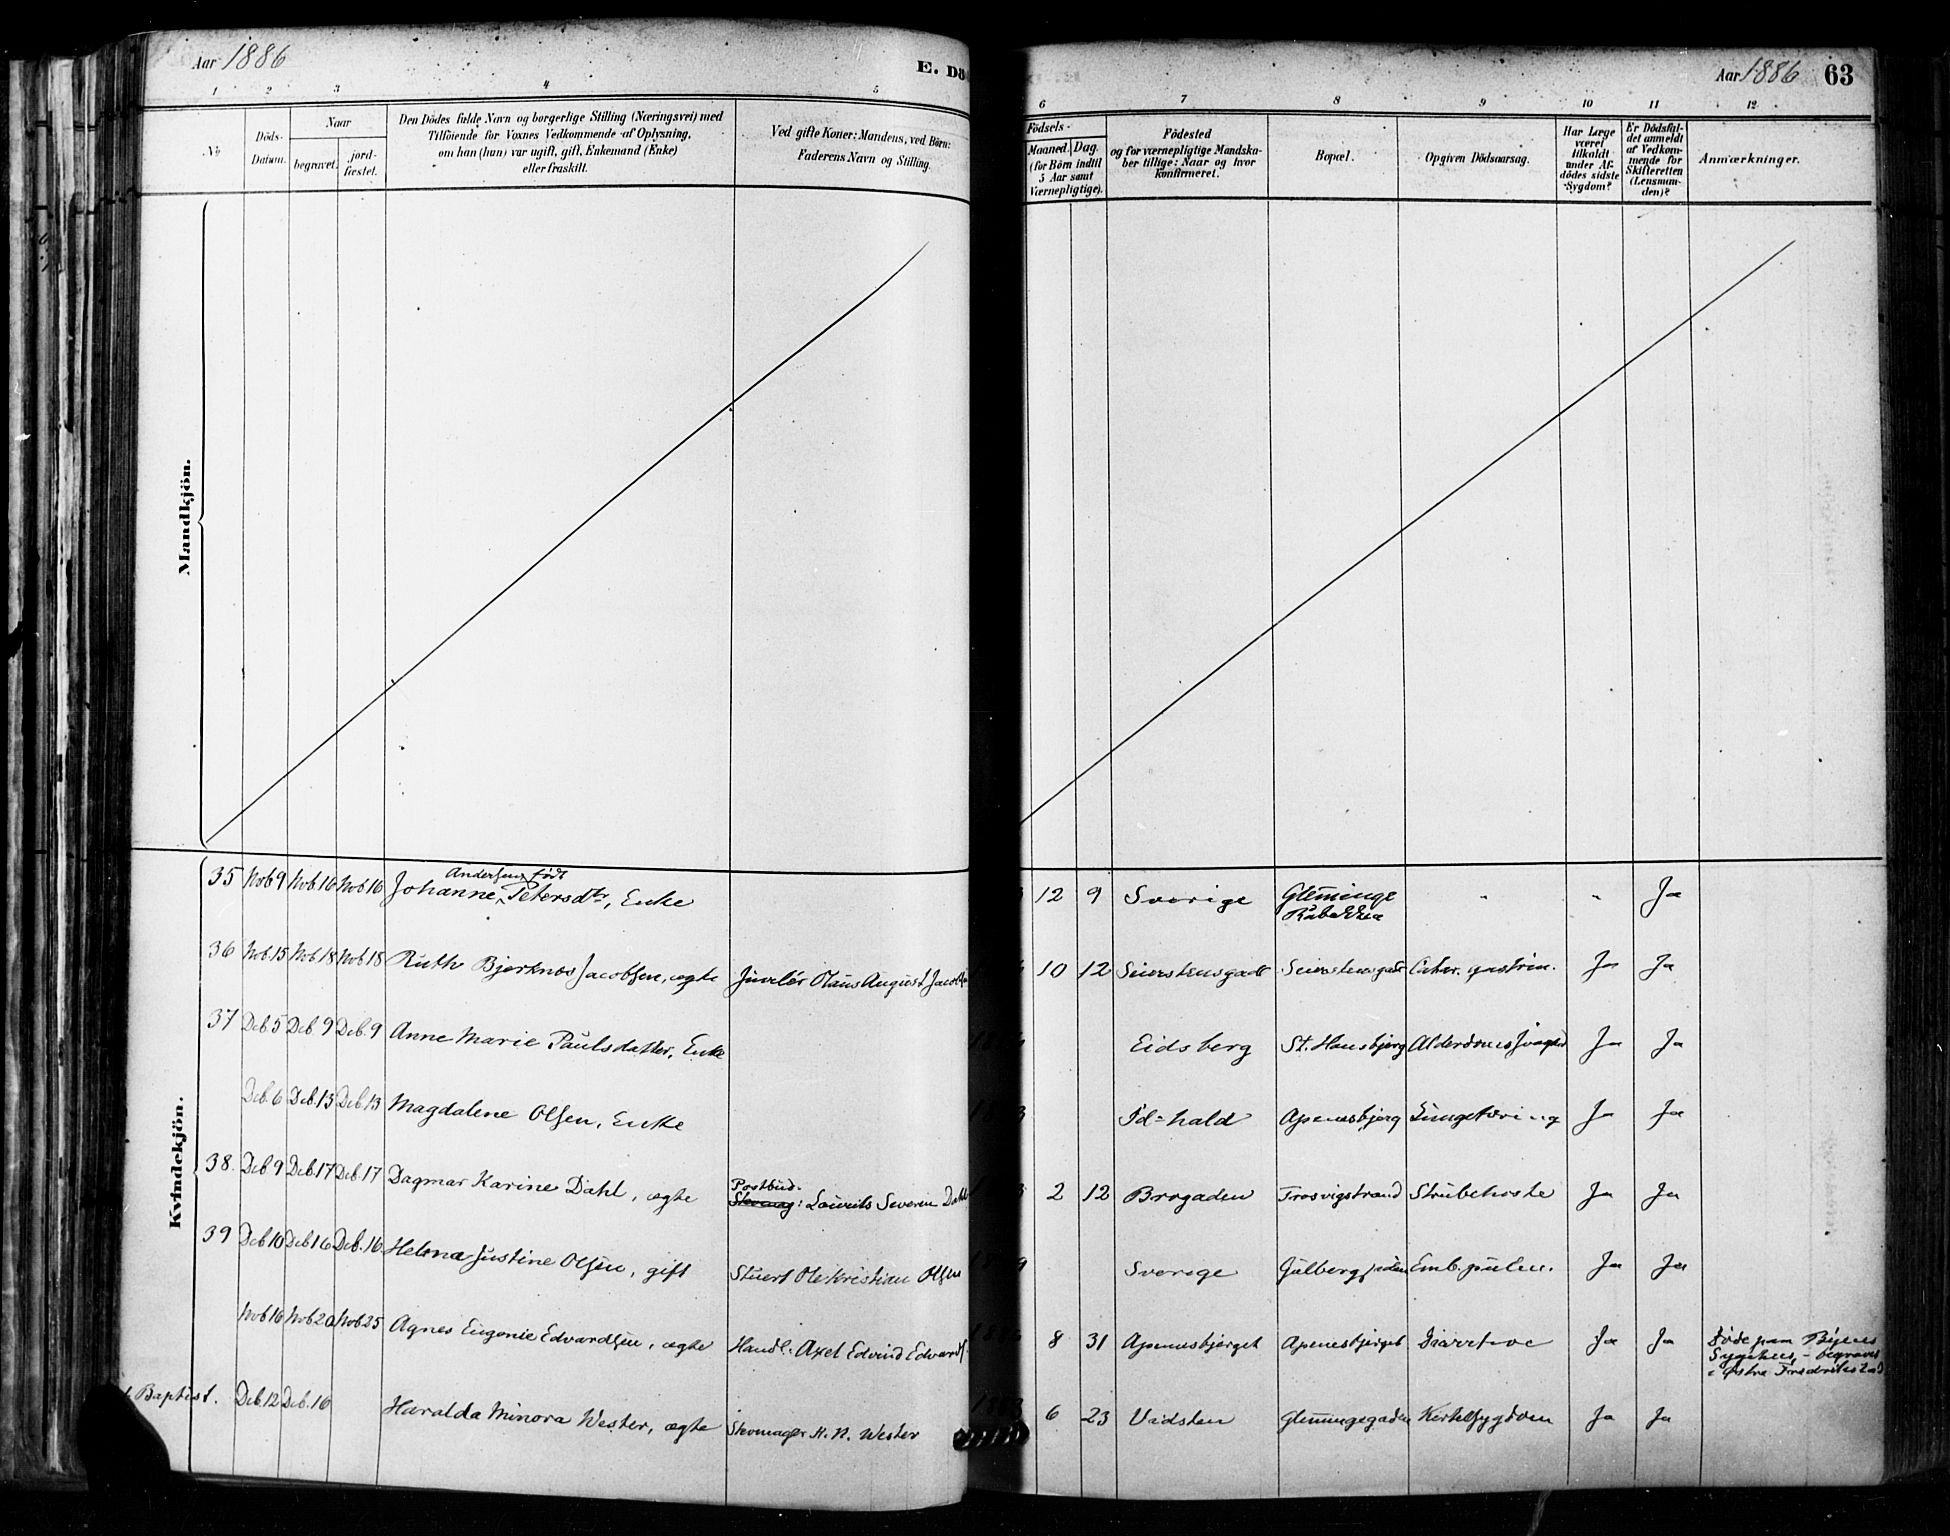 Aar 1886
E. Dö
Aar 1886 63
1 2 3 4 5 6 7 8 9 10 11 12
No
Döds-Datum.
Naar
begravet.
jord-fæstet.
Den Dödes fulde Navn og borgerlige Stilling (Næringsvei) med
Tilföiende for Voxnes Vedkommende af Oplysning,
om han (hun) var ugift, gift, Enkemand (Enke)
eller fraskilt.
Ved gifte Koner: Mandens, ved Börn:
Faderens Navn og Stilling.
Födsels-
Maaned. Dag.
(for Börn indtil
5 Aar samt
Værnepligtige).
Födested
og for værnepligtige Mandska-
ber tillige: Naar og hvor
Konfirmeret.
Bopæl.
Opgiven Dödsaarsag.
Har Læge
været
tilkaldt
under Af-
dödes sidste
Sygdom?
Er Dödsfal-
det anmeldt
af Vedkom-
mende for
Skifteretten
(Lensman-
den)?
Anmærkninger.
Mandkjön.
Kvindekjön.
Andersen, födt
35 Nob 9 Nob. 16 Nob 16 Johanne Petersdtr, Enke 12 9 Sverige Gleminge - - Ja
36 Nob. 15 Nob 18 Nob 18 Ruth Bjerknes Jacobsen, ægte Juvelér Olaus August Jacobsen 10 12 Seierstensgadt Seierstensgadt Catar. gastrin. Ja Ja
37 Deb. 5 Deb 9 Deb. 9 Anne Marie Paulsdatter, Enke Eidsberg St. Hansbjerg Ja Ja
Deb. 6 Deb. 13 Deb. 13 Magdalene Olsen, Enke Id=hald Apenesbjerg Lungetæring Ja Ja
38. Deb 9 Deb. 17 Deb. 17 Dagmar Karine Dahl, ægte Postbud. Laurits Severin Dahl 2 12 Brogaden Trosvigstrand Strubehoste Ja Ja
39 Deb 10 Deb 16 Deb. 16 Helena Justine Olsen, gift Stuert Ole Kristian Olsen Sverige Emb. pulm. Ja Ja
Nob 16 Nob 20 Nob 25 Agnes Eugenie Edvardsen, ægte Handl. Axel Edvind Edvards. 8 31 Apenesbjerget Apenesbjerget Diarrhoe Ja Ja Döde paa Byens
Sygehus, - begravet
i Östre Fredrikstad
Baptist. Deb. 12 Deb. 16 Haralda Minora Wester, ægte Skomager H. N. Wester 6 23 Vadsten Glemmegaden Kirtelsygdom Ja Ja